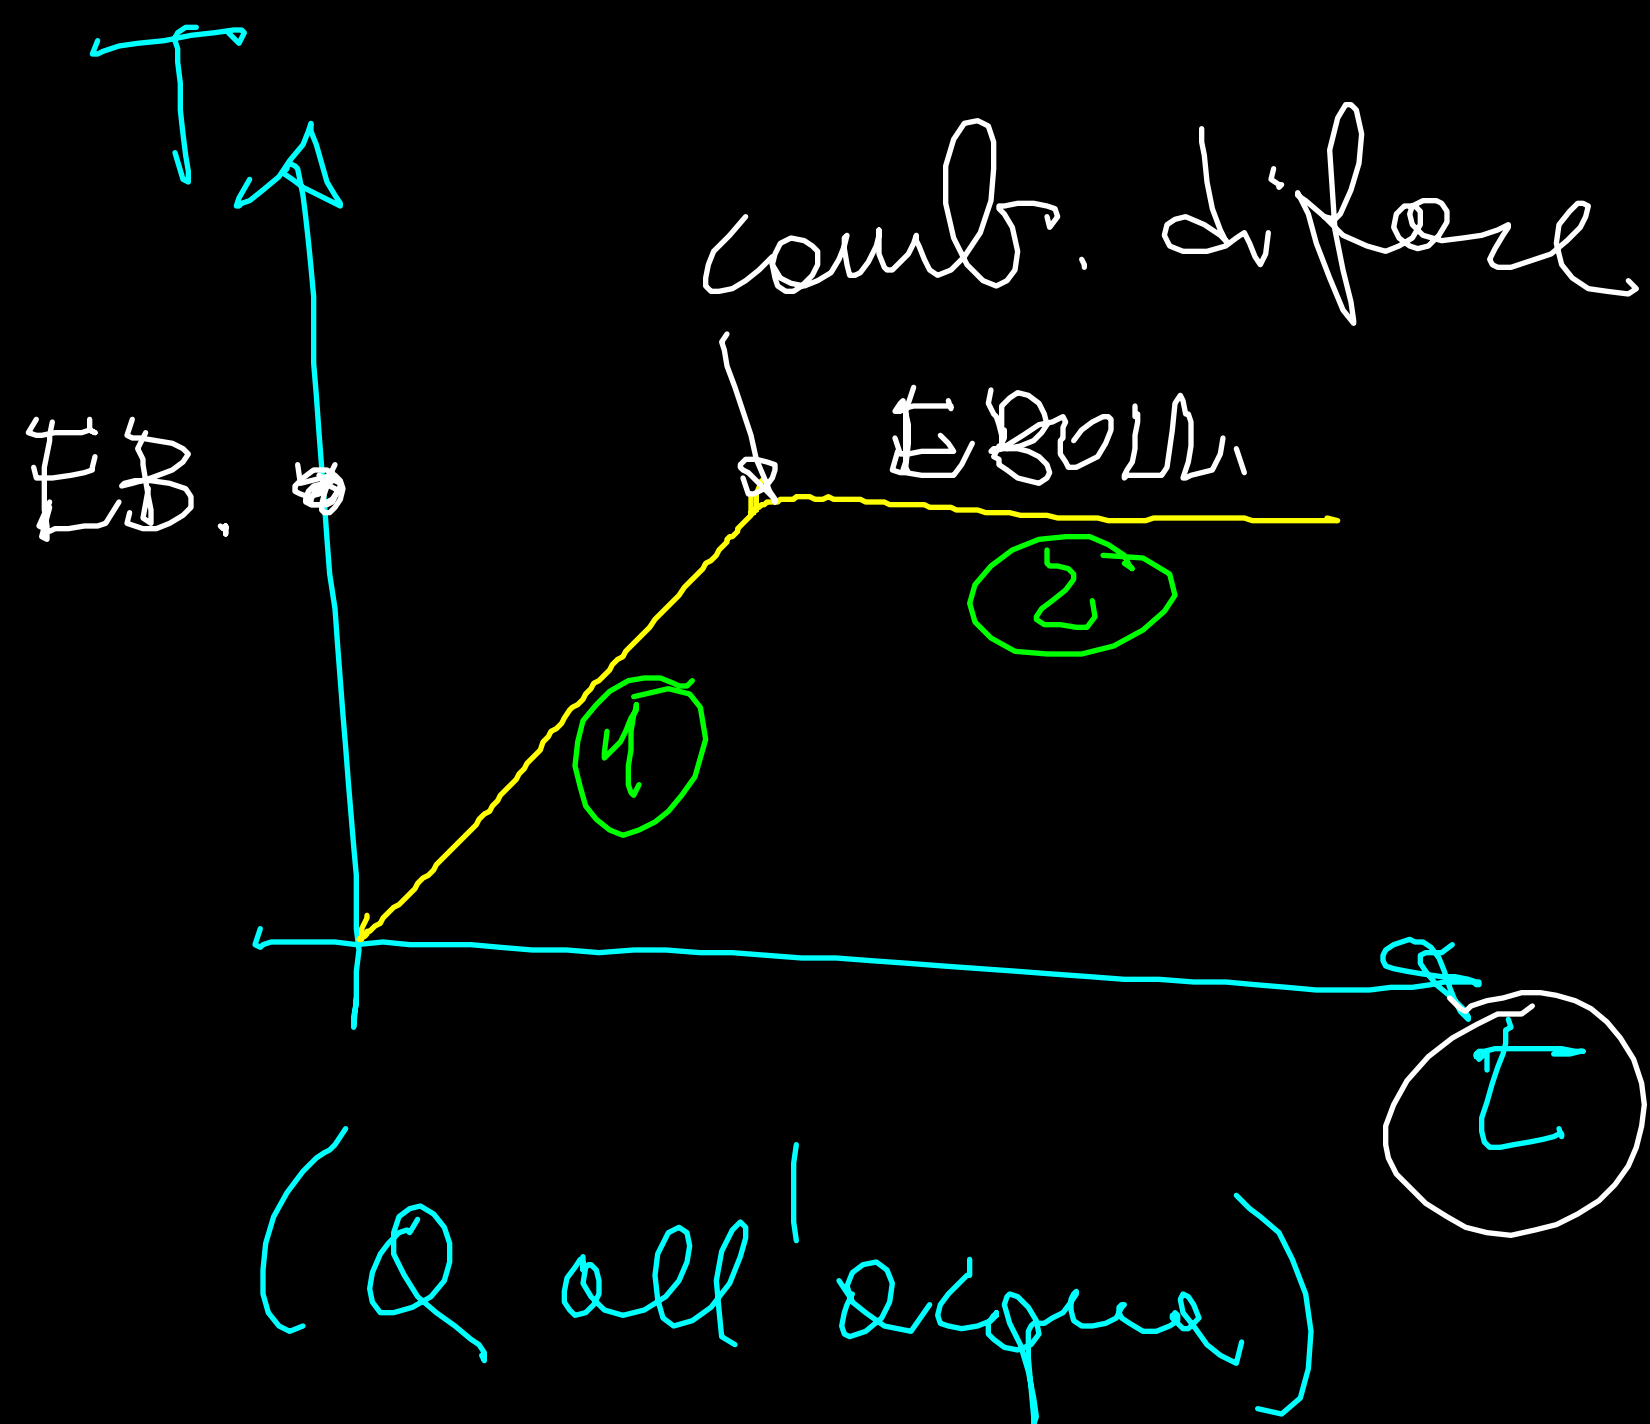 T
camb. di fase
EB.
EBOLL.
2
1
t
(Q all'acqua)